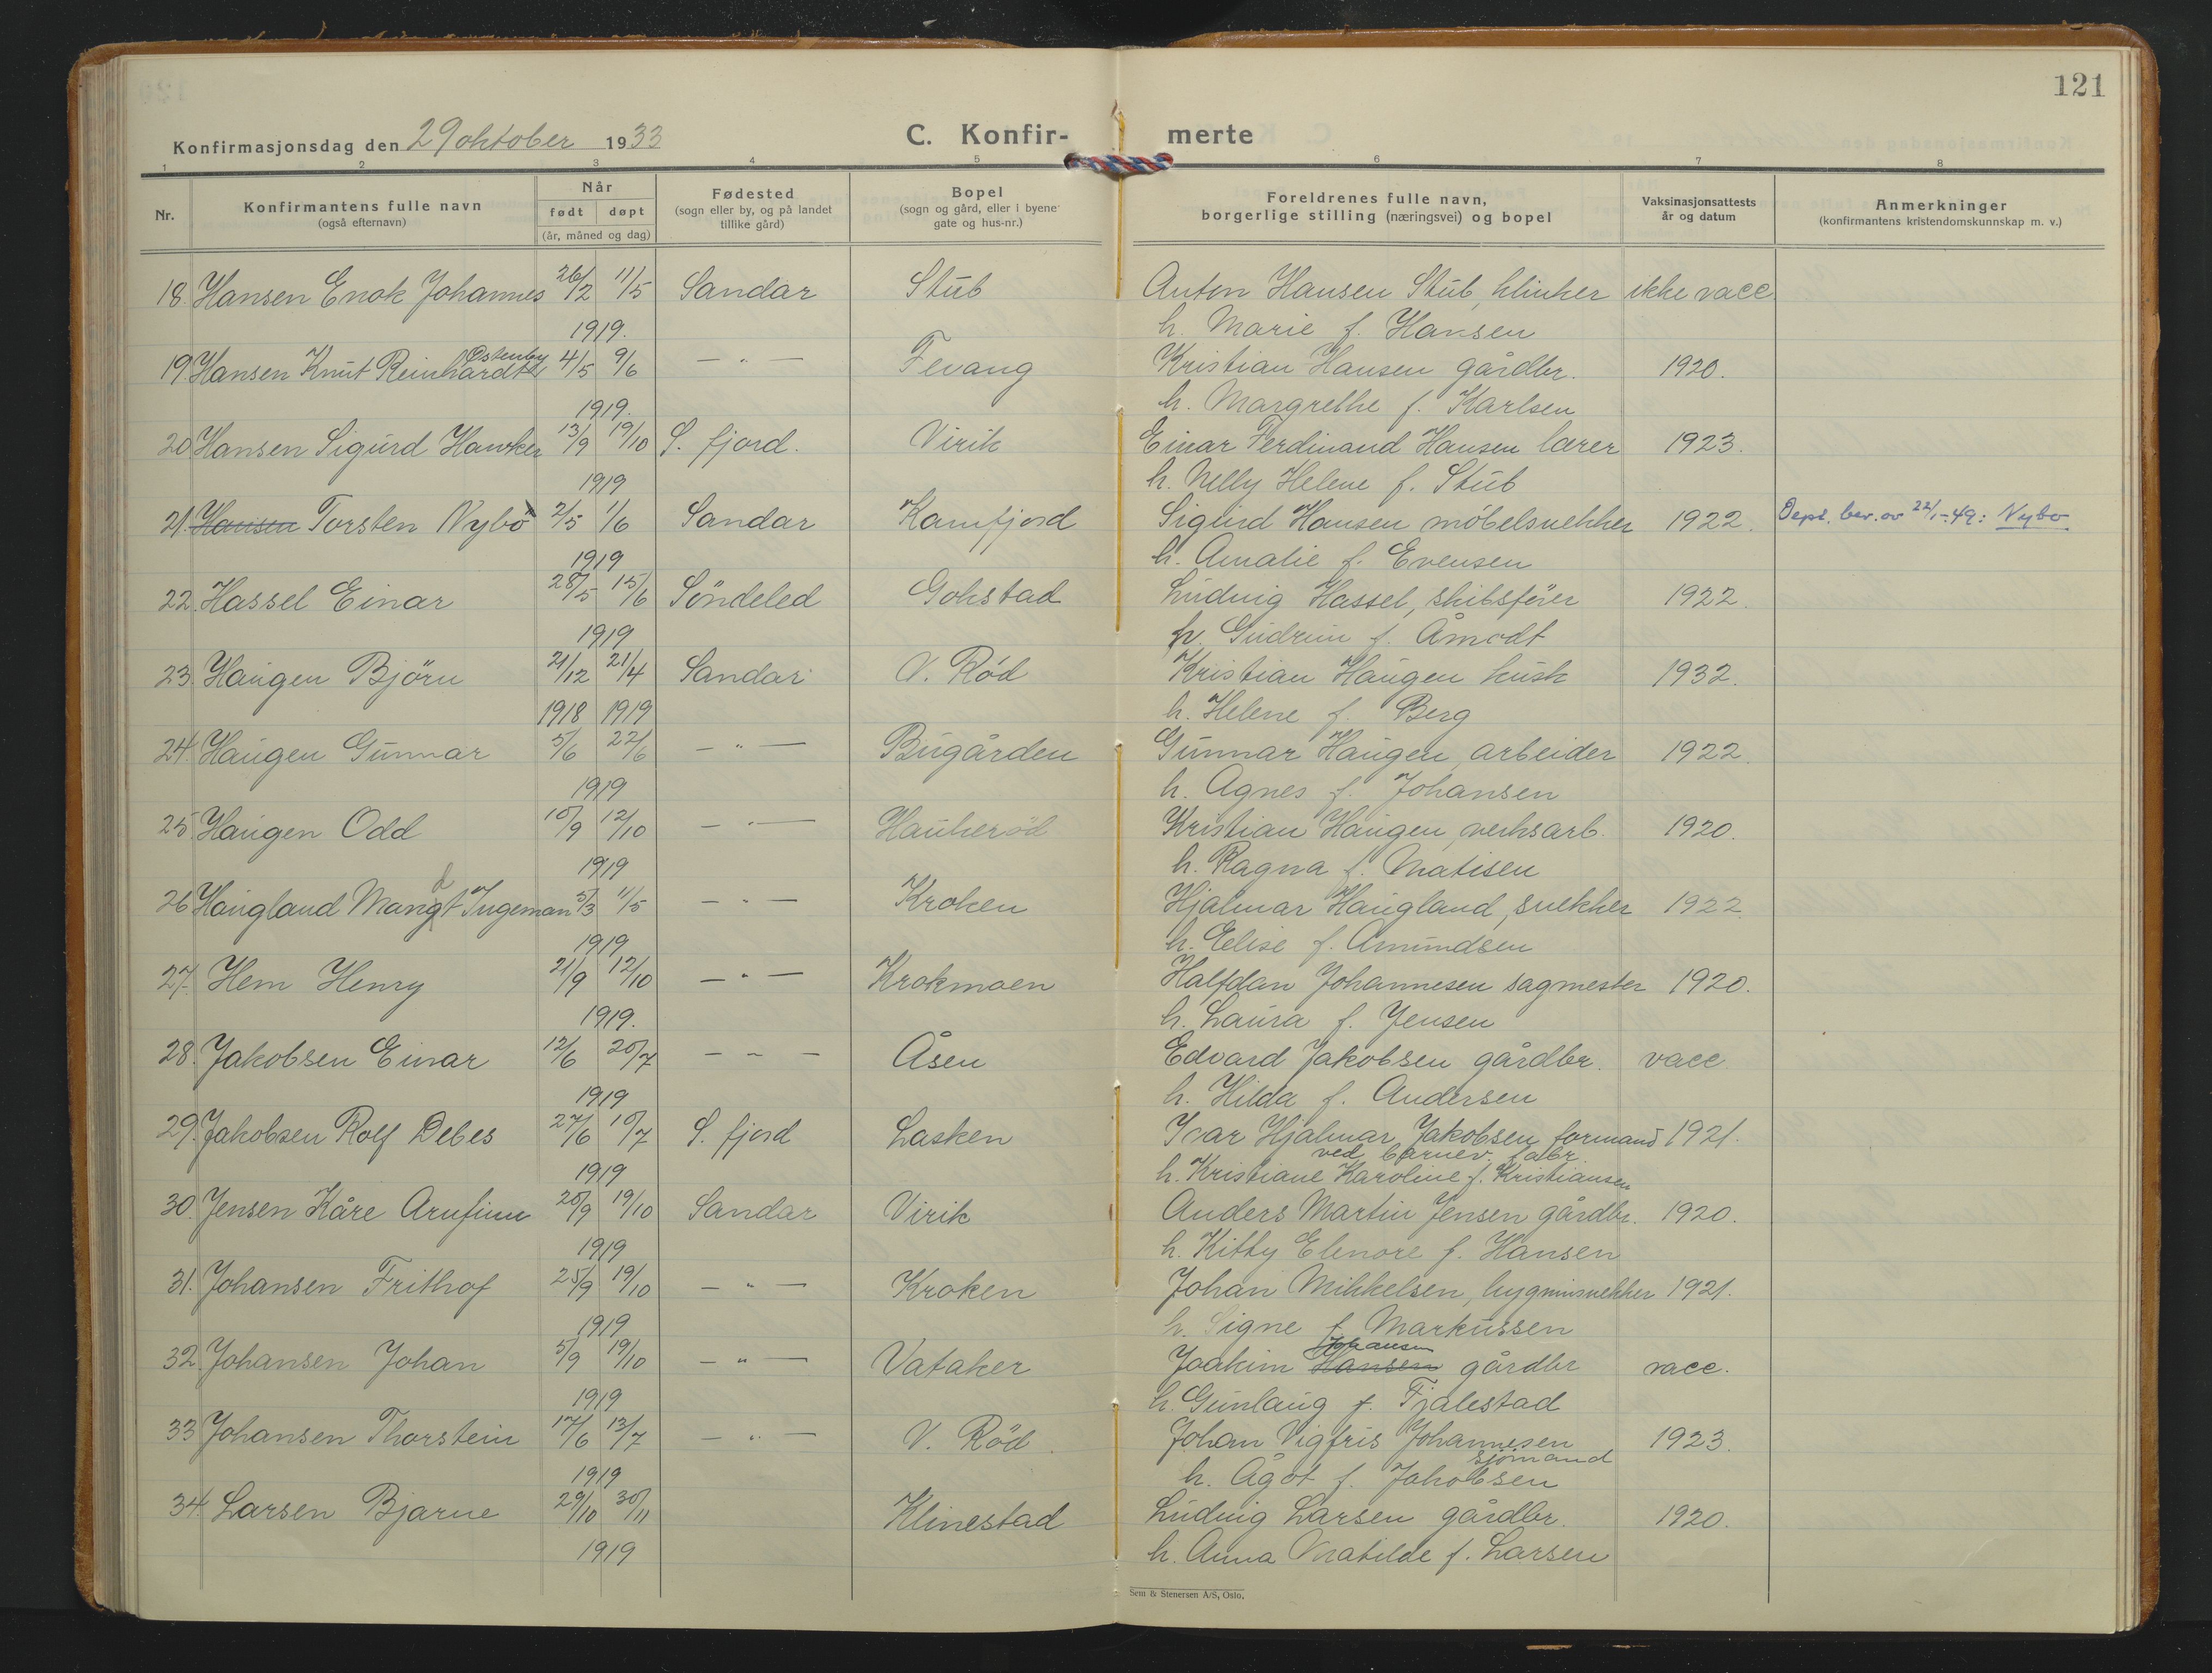 121
Konfirmasjonsdag den 29 oktober 1933
C. Konfir- merte
1 2 3 4 5 6 7 8
Nr.
Konfirmantens fulle navn
(også efternavn)
Når
født døpt
(år, måned og dag)
Fødested
(sogn eller by, og på landet
tillike gård)
Bopel
(sogn og gård, eller i byene
gate og hus-nr.)
Foreldrenes fulle navn,
borgerlige stilling (næringsvei) og bopel
Vaksinasjonsattests
år og datum
Anmerkninger
(konfirmantens kristendomskunnskap m. v.)
18. Hansen Enok Johannes 26/2 11/5 Sandar Stub Anton Hansen Stub, klinker ikke vacc.
1919. h. Marie f. Hansen
Østenby
19. Hansen Knut Reinhardt 4/5 9/6 — " — Fevang Kristian Hansen gårdbr. 1920.
1919. h. Margrethe f. Karlsen
20 Hansen Sigurd Hawker 13/9 19/10 S. fjord. Virik Einar Ferdinand Hansen lærer 1923.
1919 h. Nelly Helene f. Stub
21. Hansen Torsten Nybö 2/5 1/6 Sandar Kamfjord Sigurd Hansen möbelsnekker 1922. Dept. bev. av 22/1-49: Nybo
1919 h. Amalie f. Evensen
22. Hassel Einar 28/5 15/6 Söndeled Gokstad Ludvig Hassel, skibsförer 1922.
1919 h. Gudrun f. Åmodt
23. Haugen Björn 21/12 21/4 Sandar V. Röd Kristian Haugen kusk 1932.
1918 1919 h. Helene f. Berg
24. Haugen Gunnar 5/6 22/6 — " — Bugården Gunnar Haugen, arbeider 1922.
1919 h. Agnes f. Johansen
25. Haugen Odd 10/9 12/10 — " — Haukeröd Kristian Haugen, verksarb. 1920.
1919 h. Ragna f. Matisen
d
26 Haugland Mangt Ingeman 5/3 11/5 — " — Kroken Hjalmar Haugland, snekker 1922
1919 h. Elise f. Amundsen
27. Hem Henry 21/9 12/10 — " — Krokmoen Halfdan Johannesen sagmester 1920.
1919. h. Laura f. Jensen
28. Jakobsen Einar 12/6 20/7 — " — Åsen Edvard Jakobsen gårdbr. vacc
1919 h. Hilda f. Andersen
29. Jakobsen Rolf Debes 27/6 10/7 S. fjord Lasken Ivar Hjalmar Jakobsen formand 1921.
ved barnev. fabr.
1919 h. Kristiane Karoline f. Kristiansen
30. Jensen Kåre Arnfinn 20/9 19/10 Sandar Virik Anders Martin Jensen gårdbr. 1920.
1919 h. Kitty Elenore f. Hansen
31. Johansen Frithof 25/9 19/10 — " — Kroken Johan Mikkelsen, bygninsnekker 1921.
1919 h. Signe f. Markussen
Johansen
32. Johansen Johan 5/9 19/10 — " — Vataker Joakim Hansen gårdbr vacc.
1919 h. Gunlaug f. Fjalestad
33 Johansen Thorstein 17/6 13/7 — " — V. Röd. Johan Vigfris Johannesen 1923.
sjömand
1919 h. Ågot f. Jakobsen
34. Larsen Bjarne 29/10 30/11 Klinestad Ludvig Larsen gårdbr. 1920.
1919 h. Anna Matilde f. Larsen
Sem & Stenersen A/S, Oslo.